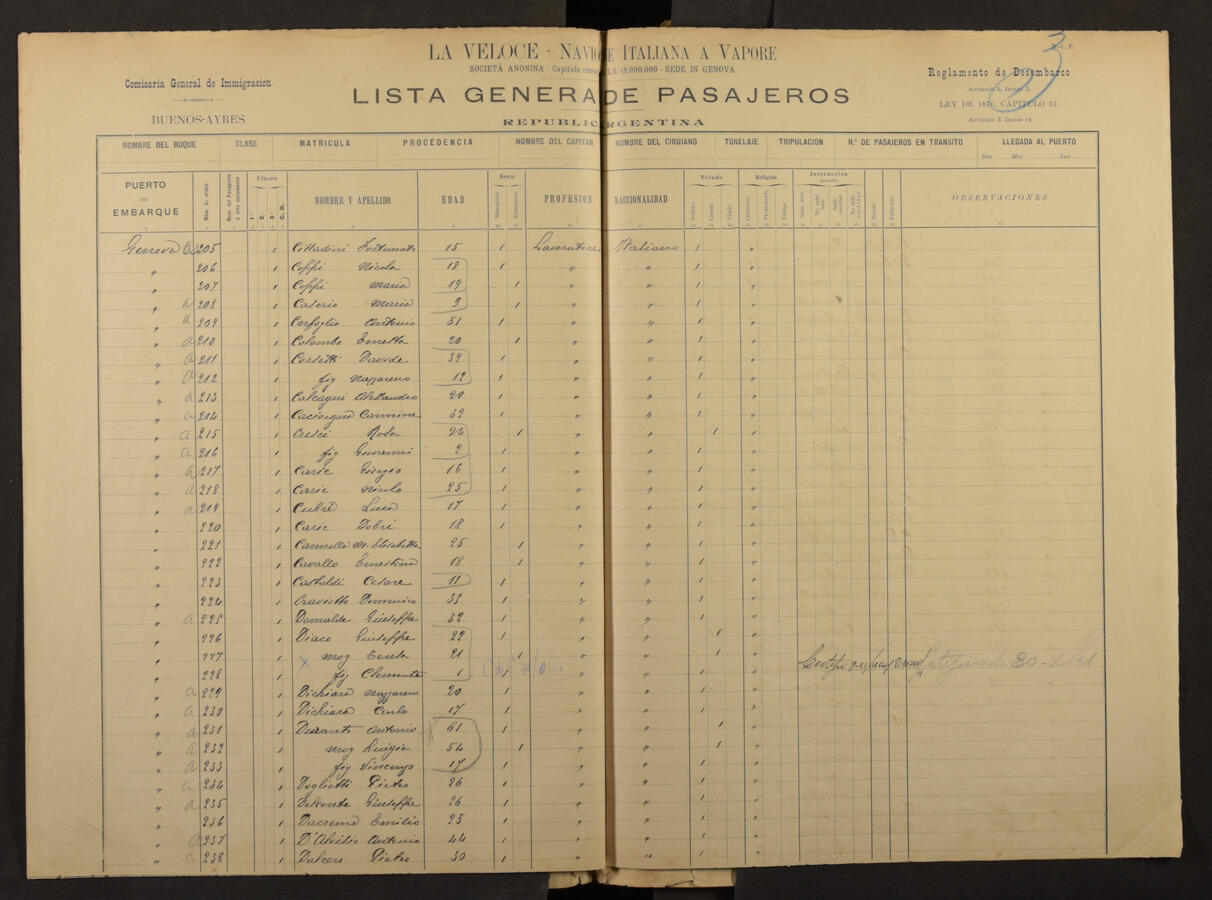 LA VELOCE - NAVIG NE ITALIANA A VAPORE
SOCIETÁ ANONINA - Capitale Lit. 18.000.000 - SEDE IN GENOVA
Comisaría General de Immigracion
BUENOS-AYRES
LISTA GENERA DE PASAJEROS
REPUBLIC ARGENTINA
3
Mod. P.
Reglamento de Desembarco
Articulo 9, Inciso 3.
LEY DE 1876, CAPITULO 51.
Articulo 3, Inciso 14
NOMBRE DEL BUQUE CLASE MATRICULA PROCEDENCIA NOMBRE DEL CAPITAN NOMBRE DEL CIRUJANO TONELAJE TRIPULACION N.º DE PASAJEROS EN TRANSITO LLEGADA AL PUERTO
Dia Mes Ano
PUERTO DE EMBARQUE Núm. de orden Núm. del Pasaporte ú otro documento Clases 1.ª 2.ª 3.ª C. D. NOMBRE Y APELLIDO EDAD Sexo Masculino Femenino PROFESION NACCIONALIDAD Estado Soltero Casado Viudo Religion Catholica Protestante Varios Instruccion primaria Sabe leer No sabe leer Sabe escribir No sabe escribir Nacido Fallecido OBSERVACIONES
Genova a 205 1 Cittadini Fortunato 15 1 Lavoratore Italiano 1 "
" 206 1 Coppi Nicola 18 1 " " 1 "
" 207 1 Coppi Maria 19 1 " " 1 "
" a 208 1 Caserio Maria 9 1 " " 1 "
" a 209 1 Cerfoglio Antonio 51 1 " " 1 "
" a 210 1 Colombo Ernesta 20 1 " " 1 "
" a 211 1 Corsetti Davide 34 1 " " 1 "
" a 212 1 fig Nazzareno 12 1 " " 1 "
" a 213 1 Calcagni Alessandro 20 1 " " 1 "
" a 214 1 Carmine 32 1 " " 1 "
" a 215 1 Cresci Rosa 22 1 " " 1 "
" a 216 1 fig Giovanni 2 1 " " 1 "
" a 217 1 Caric Giorgio 16 1 " " 1 "
" a 218 1 Caric Nicolo 25 1 " " 1 "
" a 219 1 Luca 17 1 " " 1 "
" 220 1 Caric Dobri 18 1 " " 1 "
" 221 1 Carmella M. Elisabetta 25 1 " " 1 "
" 222 1 Cavallo Ernestina 18 1 " " 1 "
" 223 1 Castaldi Cesare 11 1 " " 1 "
" 224 1 Craviotto Domenico 35 1 " " 1 "
" a 225 1 Giuseppe 32 1 " " 1 "
" 226 1 Diaco Giuseppe 22 1 " " 1 "
" 227 1 X mog Teresa 21 1 " " 1 "
" 228 1 fig Clemente 1 1 " " 1 "
" a 229 1 Dichiara Nazzareno 20 1 " " 1 "
" a 230 1 Dichiara Carlo 17 1 " " 1 "
" a 231 1 Duranti Antonio 61 1 " " 1 "
" a 232 1 mog Luigia 54 1 " " 1 "
" a 233 1 fig Vincenzo 17 1 " " 1 "
" a 234 1 Doglietti Pietro 26 1 " " 1 "
" a 235 1 Delconte Giuseppe 26 1 " " 1 "
" 236 1 Dacrema Emilio 25 1 " " 1 "
" a 237 1 D'Aloisio Antonio 44 1 " " 1 "
" a 238 1 Dalcero Pietro 30 1 " " 1 "